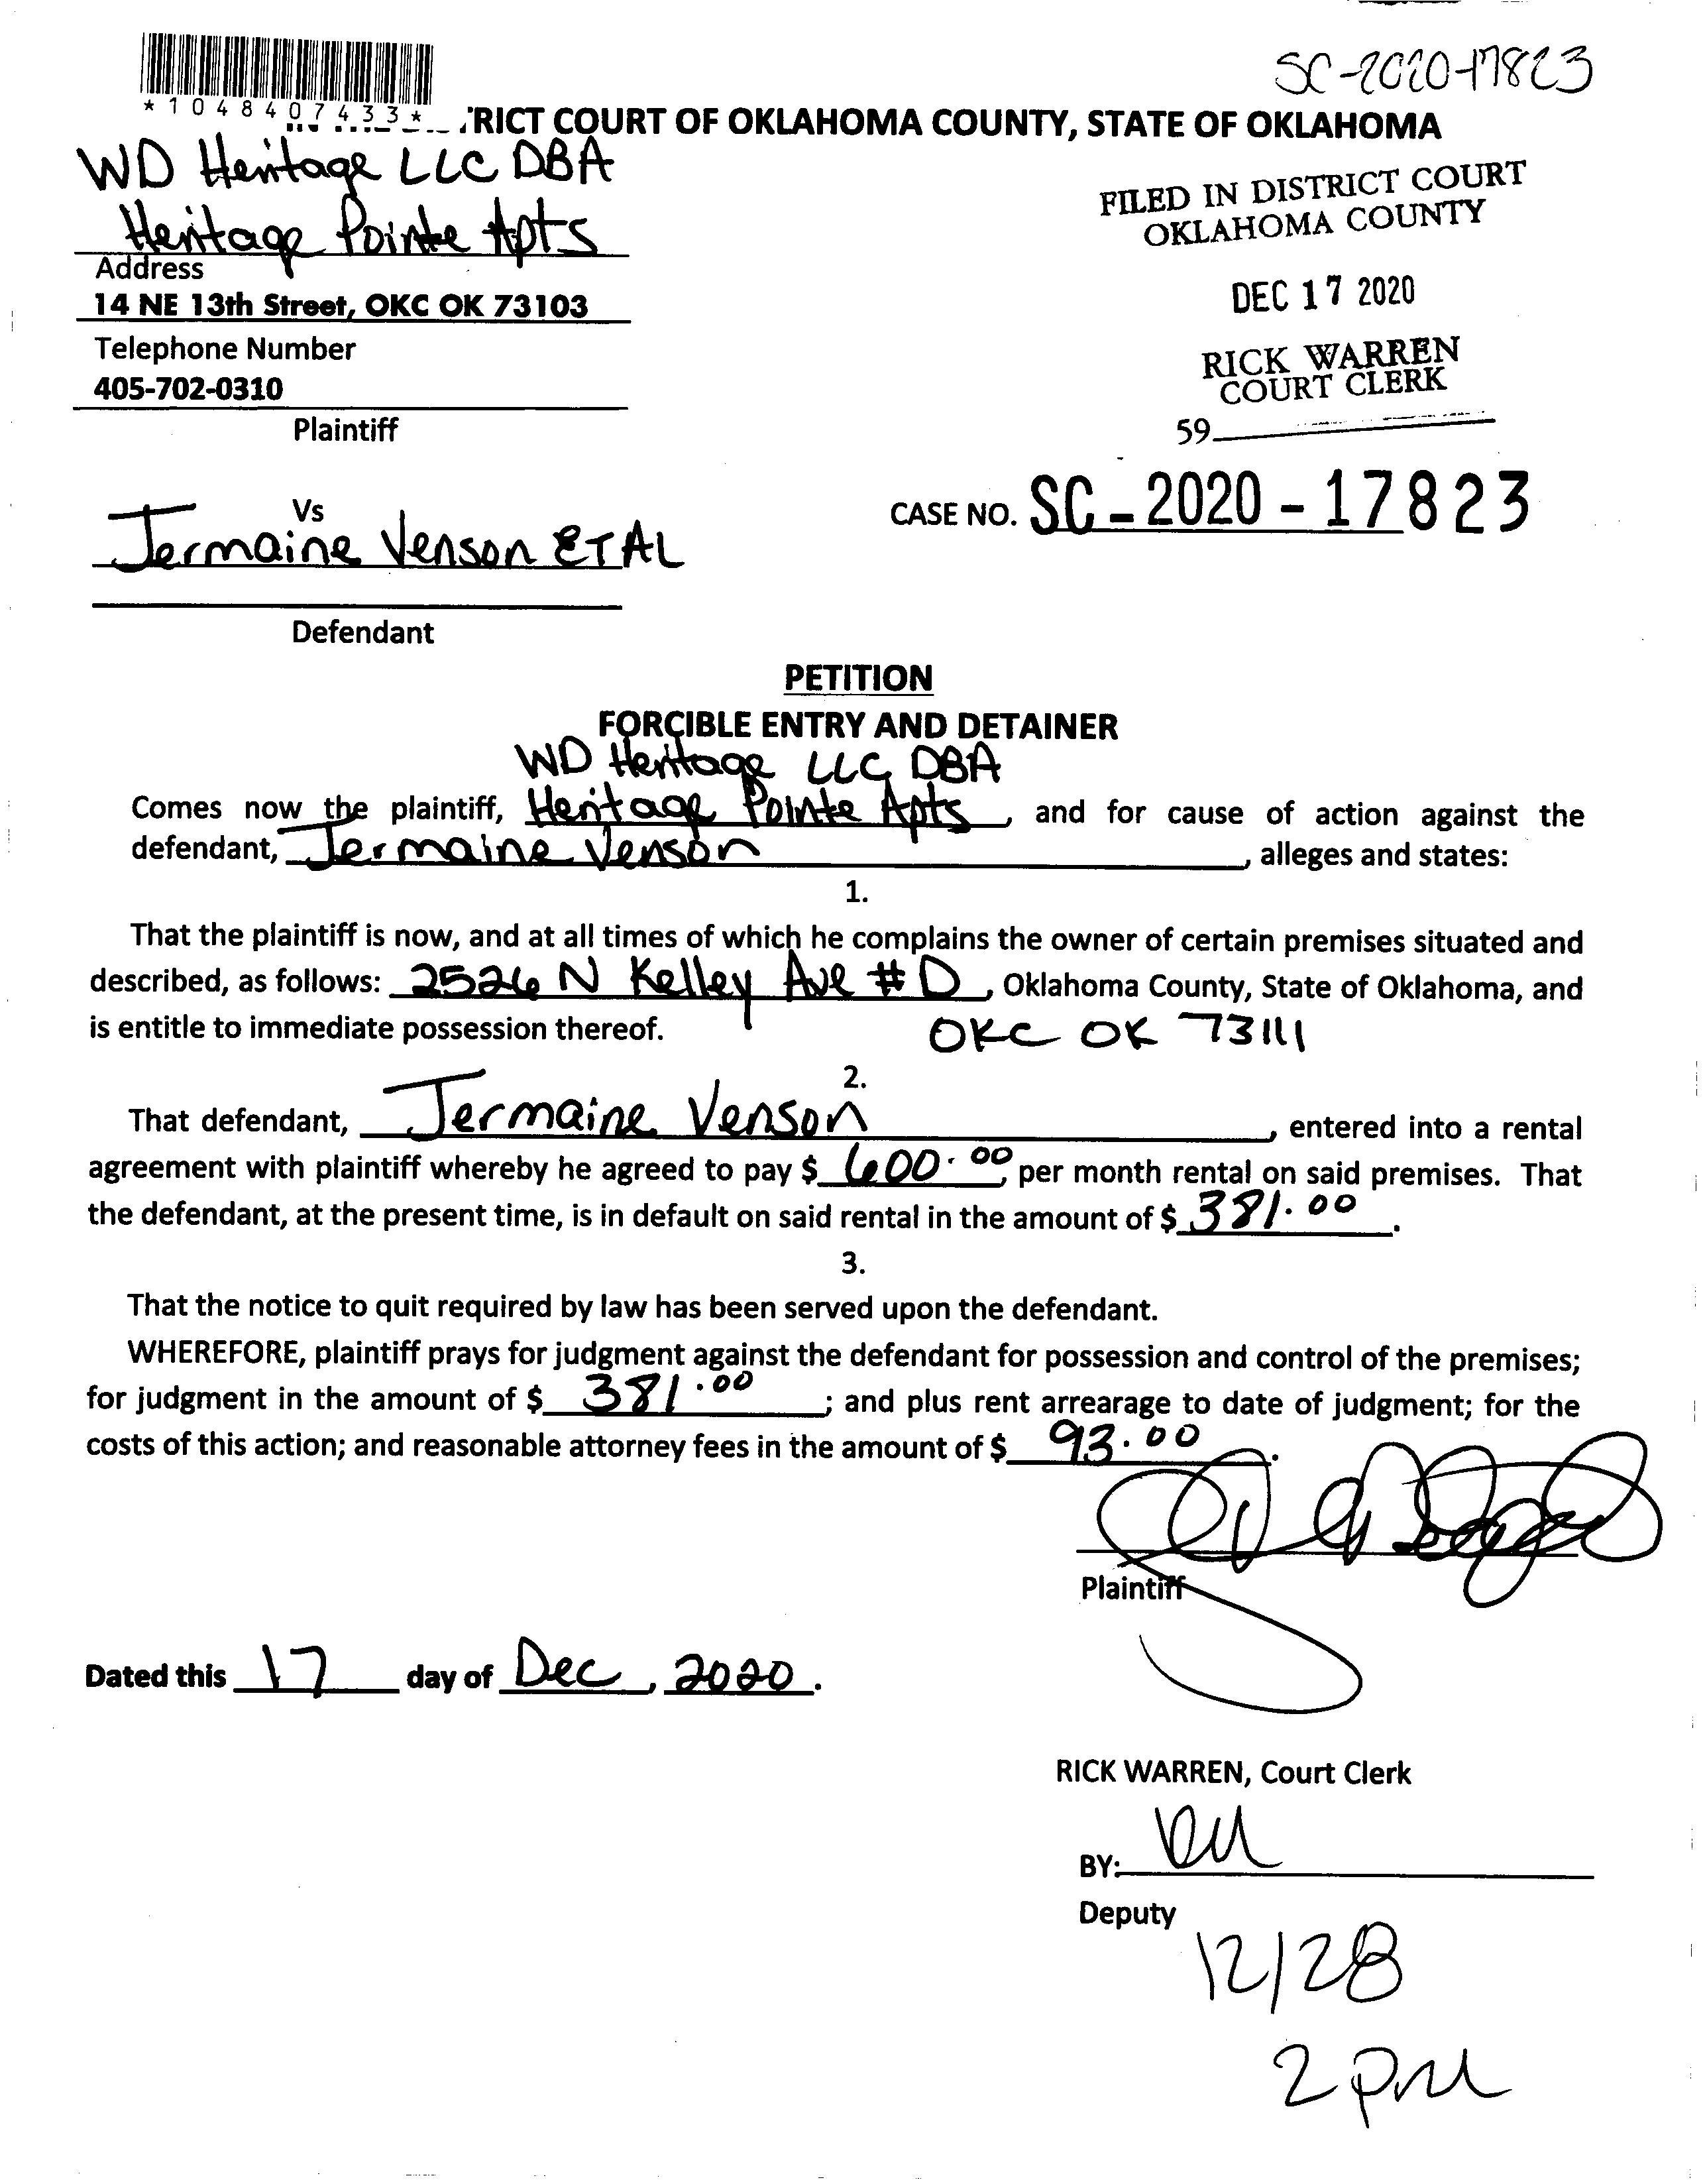 SC-2020-17823
*1048407433*
RICT COURT OF OKLAHOMA COUNTY, STATE OF OKLAHOMA
WD Heritage LLC DBA
Heritage Pointe Apts
Address
14 NE 13th Street, OKC OK 73103
Telephone Number
405-702-0310
Plaintiff
FILED IN DISTRICT COURT
OKLAHOMA COUNTY
DEC 17 2020
RICK WARREN
COURT CLERK
59
Vs
Jermaine Venson ET AL
Defendant
CASE NO. SC-2020-17823
PETITION
FORCIBLE ENTRY AND DETAINER
WD Heritage LLC DBA
Comes now the plaintiff, Heritage Pointe Apts, and for cause of action against the
defendant, Jermaine Venson, alleges and states:
1.
That the plaintiff is now, and at all times of which he complains the owner of certain premises situated and
described, as follows: 2526 N Kelley Ave #D, Oklahoma County, State of Oklahoma, and
is entitle to immediate possession thereof. OKC OK 73111
2.
That defendant, Jermaine Venson, entered into a rental
agreement with plaintiff whereby he agreed to pay $ 600.00, per month rental on said premises. That
the defendant, at the present time, is in default on said rental in the amount of $ 381.00.
3.
That the notice to quit required by law has been served upon the defendant.
WHEREFORE, plaintiff prays for judgment against the defendant for possession and control of the premises;
for judgment in the amount of $ 381.00; and plus rent arrearage to date of judgment; for the
costs of this action; and reasonable attorney fees in the amount of $ 93.00.
Plaintiff
Dated this 17 day of Dec, 2020.
RICK WARREN, Court Clerk
BY:
Deputy
12/28
2 pm